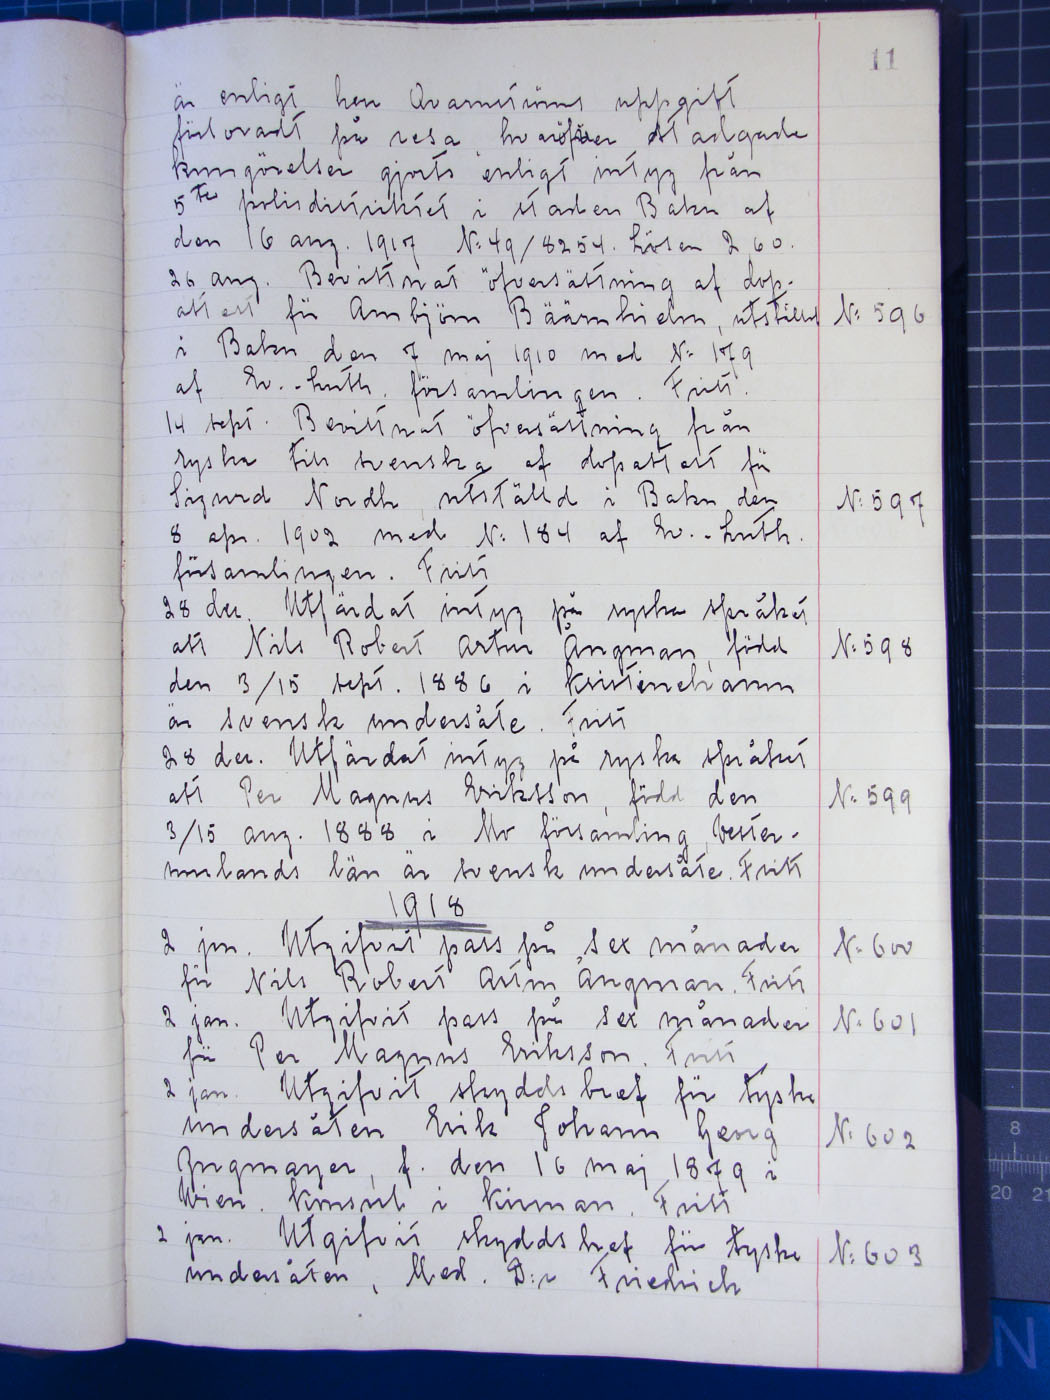 11
är enligt herr Avanesians uppgift
förloradt på resa, hvaröfver stadgade
kungörelser gjorts enligt intyg från
5te polisdistriktet i staden Baku af
den 16 aug. 1917 No: 49/8254. Lösen 2.60.
26 aug. Bevittnat öfversättning af dop-
attest för Ambjörn Bäärnhielm, utställd No: 596
i Baku den 7 maj 1910 med No: 179
af Ev.-Luth. församlingen. Fritt.
14 sept. Bevittnat öfversättning från
ryska till svenska af dopattest för
Sigurd Nordh utställd i Baku den No: 597
8 apr. 1902 med No: 184 af Ev.-Luth.
församlingen. Fritt
28 dec. Utfärdat intyg på ryska språket
att Nils Robert Artur Ångman, född No: 598
den 3/15 sept. 1886 i Kristinehamn
är svensk undersåte. Fritt
28 dec. Utfärdat intyg på ryska språket
att Per Magnus Eriksson, född den No: 599
3/15 aug. 1888 i Mo församling, Vester-
norrlands län är svensk undersåte. Fritt
1918
2 jan. Utgifvit pass på sex månader No: 600
för Nils Robert Artur Ångman. Fritt
2 jan. Utgifvit pass på sex månader No: 601
för Per Magnus Eriksson. Fritt
2 jan. Utgifvit skyddsbref för tyske
undersåten Erik Johann Georg No: 602
Zugmayer, f. den 16 maj 1879 i
Wien. Konsul i Kirman. Fritt
2 jan. Utgifvit skyddsbref för tyske No: 603
undersåten, Med. D:r Friedrich
8
20 21
N